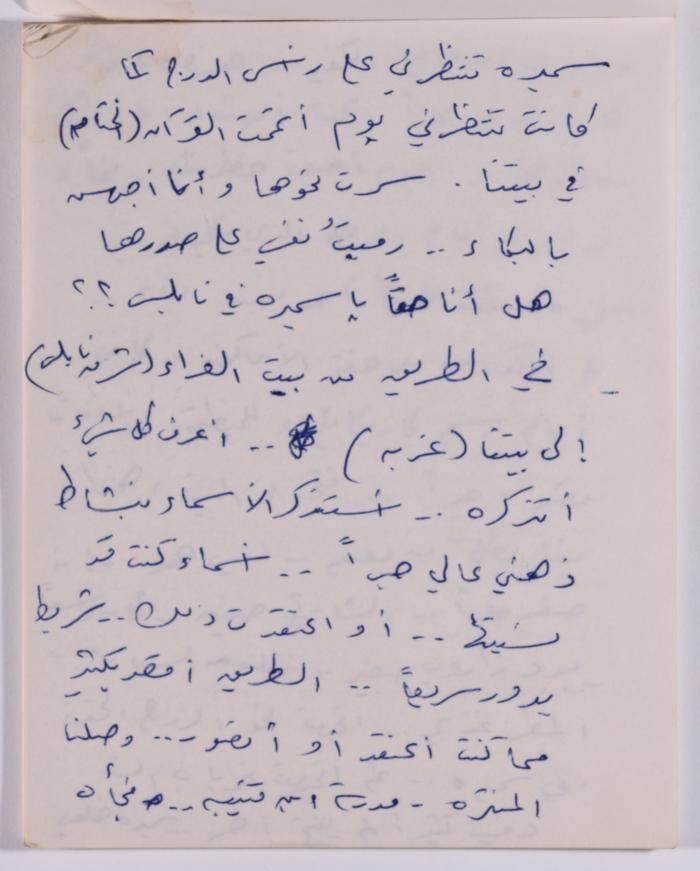 سميره تنتظرني على رأس الدرج كما
كانت تنتظرني يوم أتممت القرآن (الختامه)
في بيتنا . سرت نحوها وأنا أجهش
بالبكاء .. رميتُ نفسي على صدرها
هل أنا حقاً يا سميره في نابلس ؟؟
في الطريق من بيت الفراء (شرق نابلس)
إلى بيتنا (غربه) .. أعرف كل شيء
أتذكره .. أستذكر الأسماء بنشاط
ذهني عالي جداً .. أسماء كنت قد
نسيتها .. أو اعتقدت ذلك .. شريط
يدور سريعاً .. الطريق أقصر بكثير
مما كنت أعتقد أو أتصور .. وصلنا
المنتزه - مدرسة ابن قتيبه .. فجأه